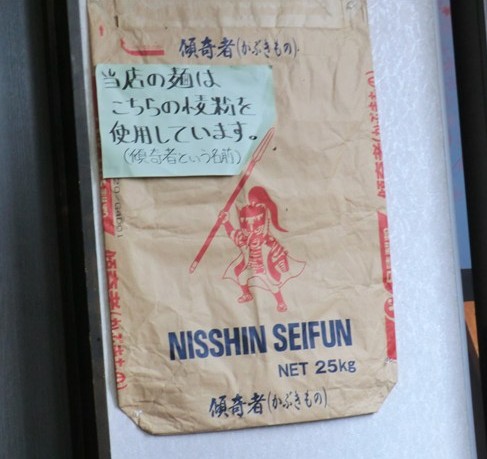 傾奇者(かぶきもの)
当店の麺は
こちらの麦粉を
使用しています。
(傾奇者という名前)
NISSHIN SEIFUN
NET 25kg
傾奇者(かぶきもの)
傾奇者(かぶきもの)